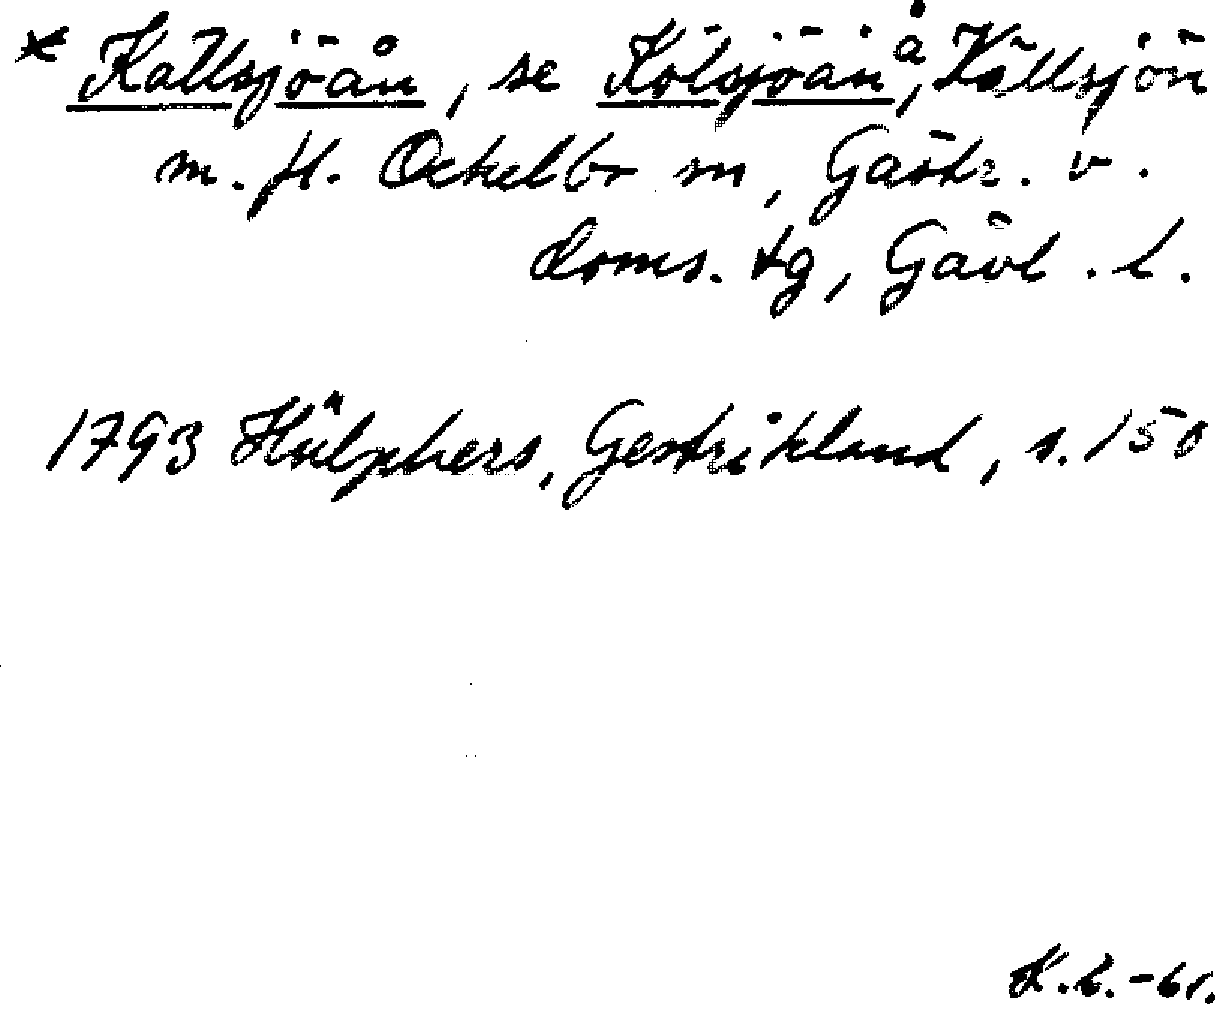 * Kallsjöån, se Kölsjöån å, Källsjön
m. fl. Ockelbo sn, Gästr. v.
doms. tg, Gävl. l.
1793 Hülphers, Gestrikland, s. 150
K.L.-61.